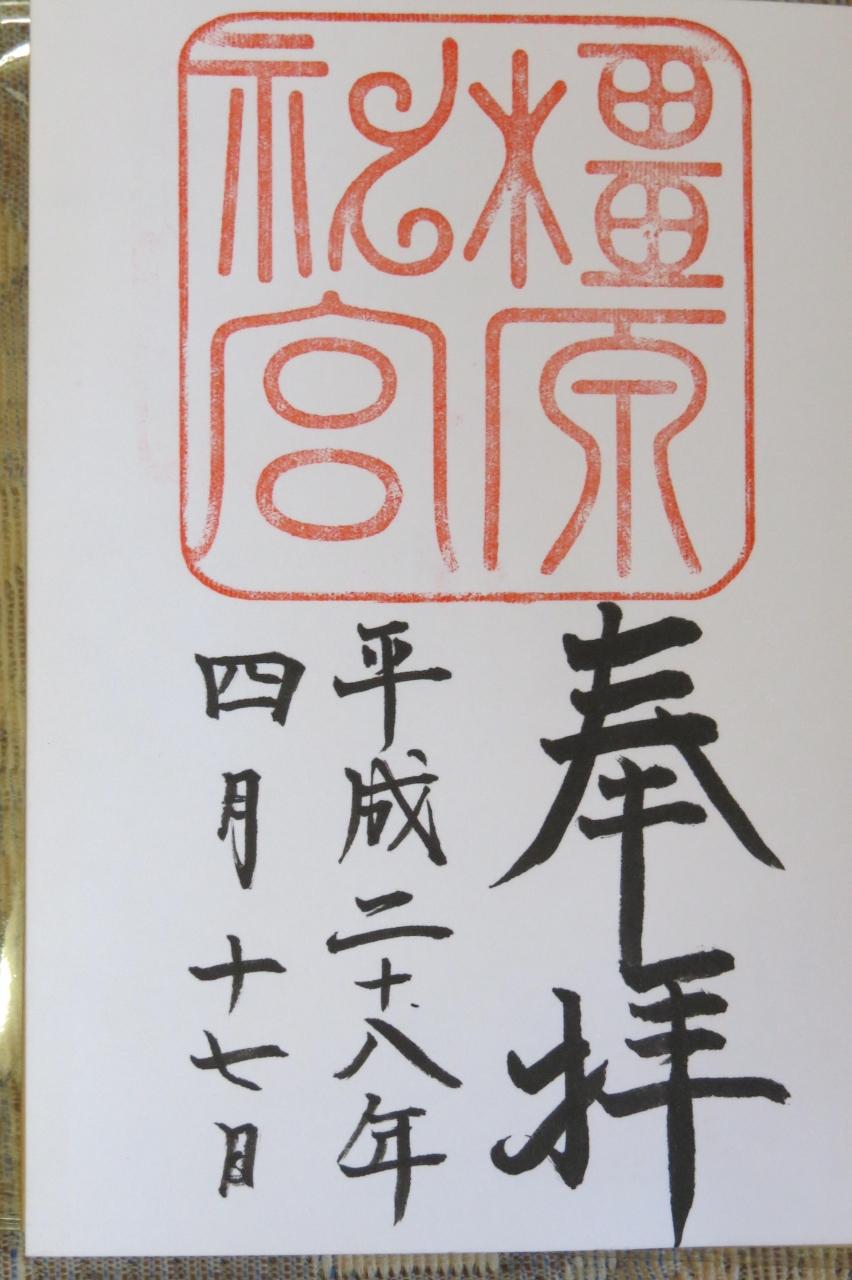 橿原
神宮
奉拝
平成二十八年
四月十七日